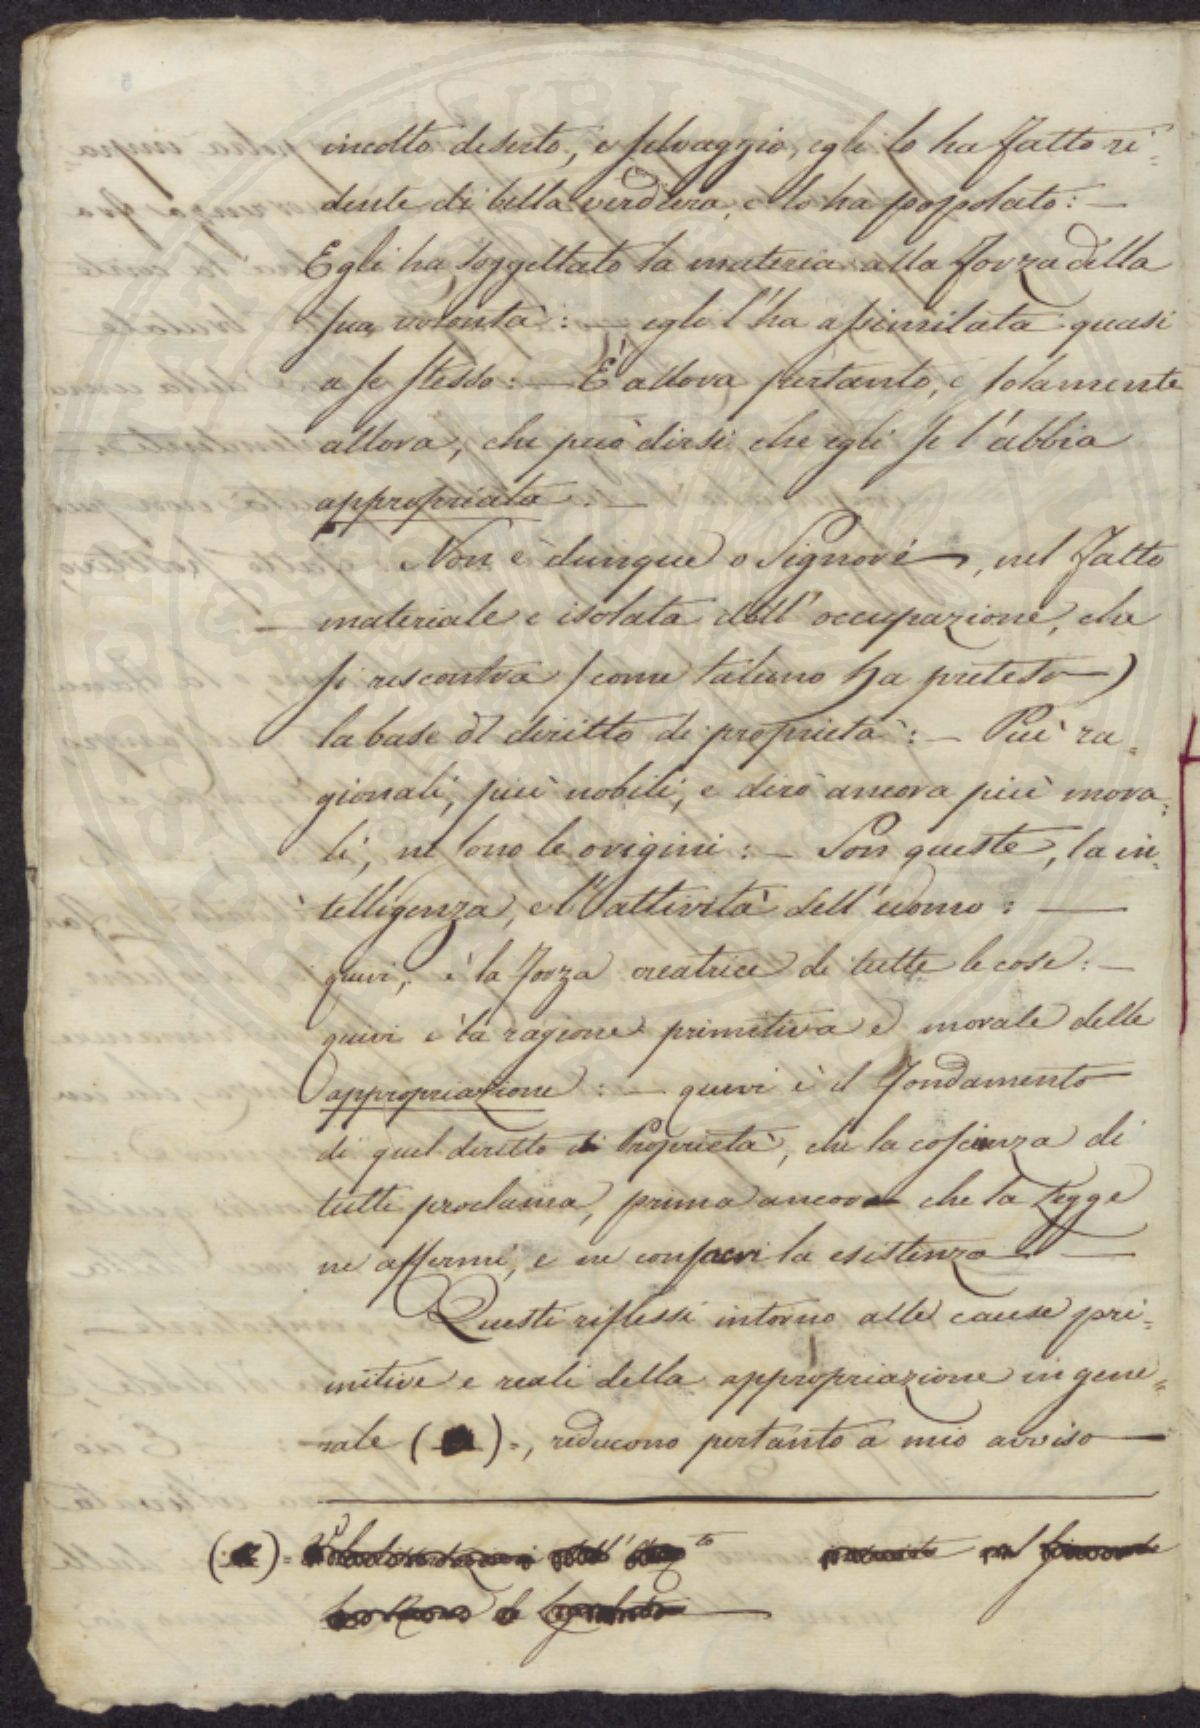 incolto deserto, e selvaggio, egli lo ha fatto ri=
dente di bella verdura, e lo ha popolato: —
Egli ha soggettato la materia alla forza della
sua volontà: — egli l'ha assimilata quasi
a se stesso: — È allora pertanto, e solamente
allora, che può dirsi che egli se l'abbia
appropriata: —
Non è dunque o Signori —, nel fatto
— materiale e isolata dell'occupazione, che
si rescontra (come taluno ha preteso —)
la base del diritto di proprietà: — Più ra=
gionali, più nobili, e dirò ancora più mora=
li, ne sono le origini: — Son queste, la in=
telligenza, e l'attività dell'uomo: —
quivi, è la forza creatrice di tutte le cose: —
quivi è la ragione primitiva e morale delle
appropriazione: — quivi è il fondamento
di quel diritto di Proprietà, che la coscienza di
tutti proclama, prima ancora che la Legge
ne affermi, e ne consacri la esistenza —
Questi riflessi intorno alle cause pri=
mitive e reali della appropriazione in gene=
rale ( ) =, reducono pertanto a mio avviso —
( ) =